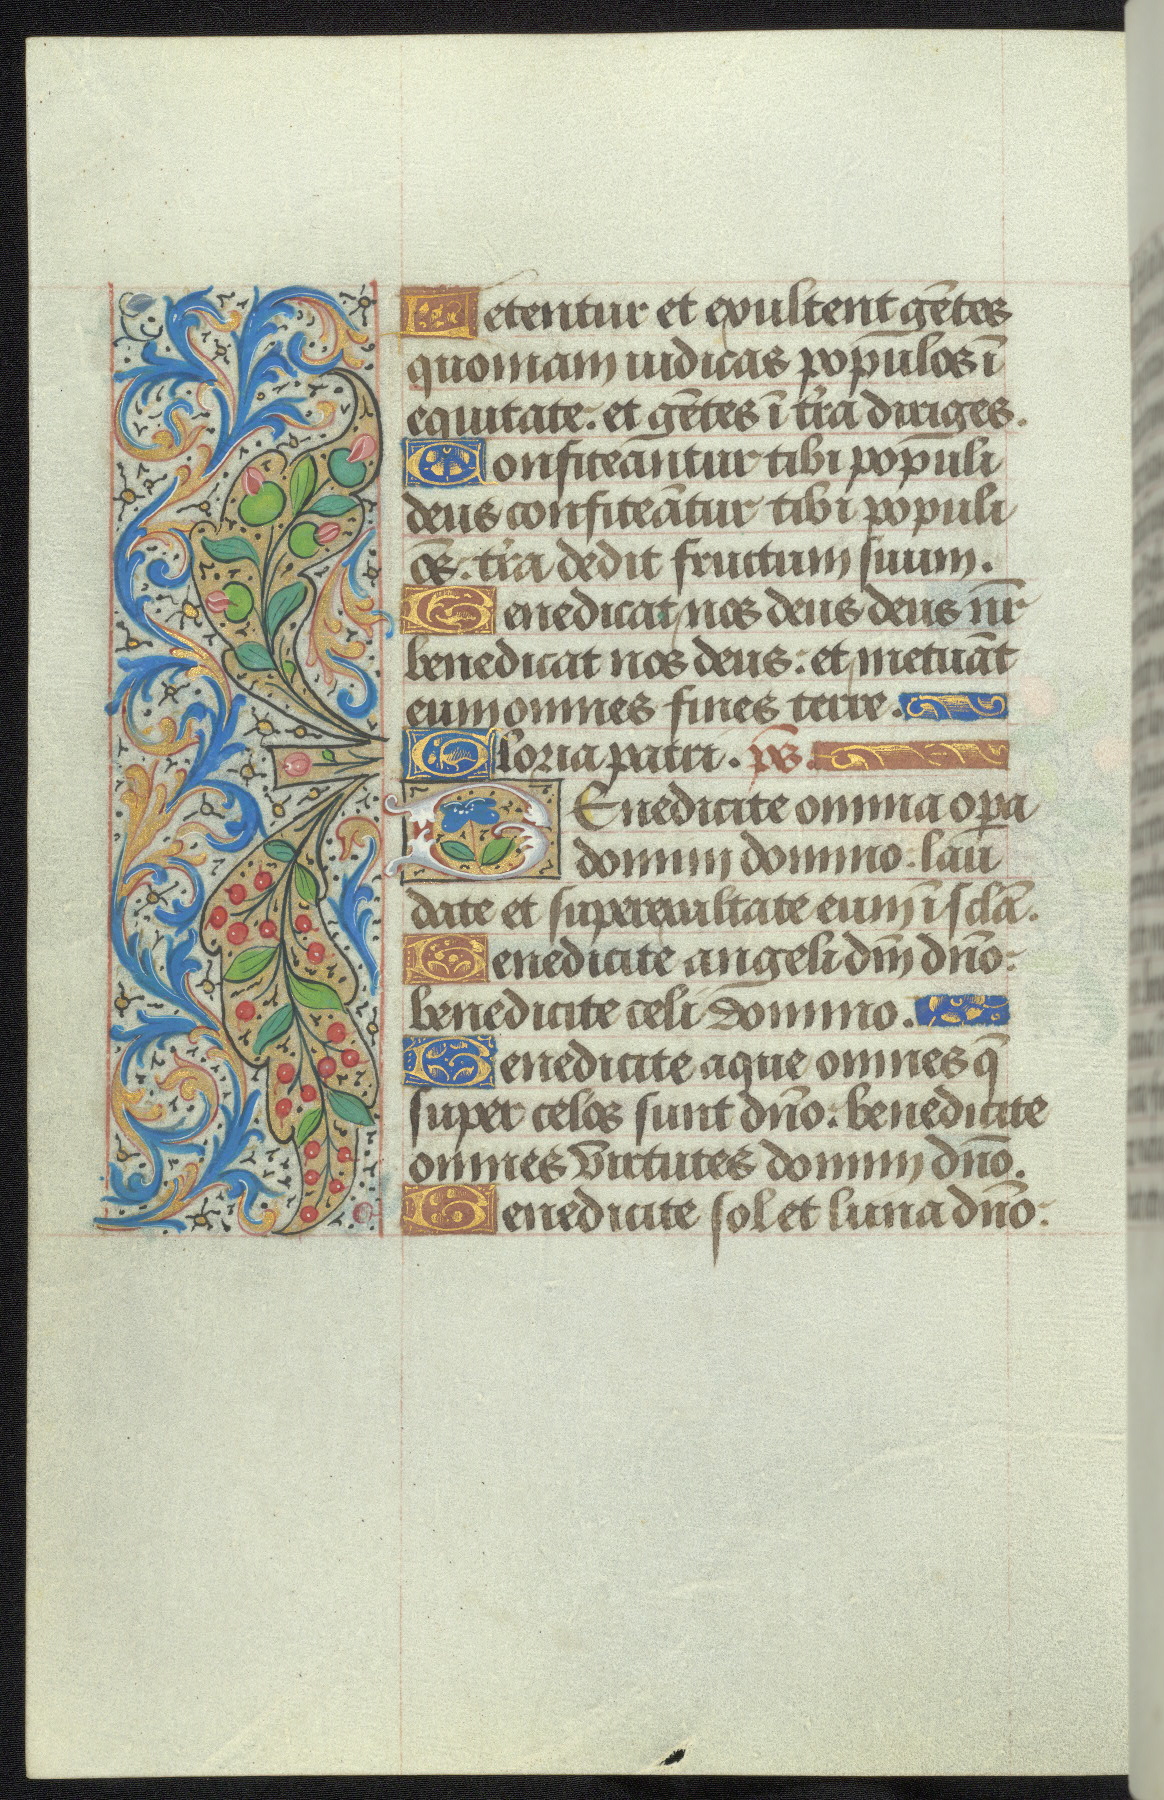 Letentur et exultent gẽtes
quoniam iudicas populos ĩ
equitate. et gẽtes ĩ tr̃a diriges.
Confiteantur tibi populi
deus confiteãtur tibi populi
õẽs. tr̃a dedit fructum suum.
Benedicat nos deus deus nr̃
benedicat nos deus: et metuãt
eum omnes fines terre.
Gloria patri. ps̃.
BEnedicite omnia opa
domini domino. lau
date et superexultate eum ĩ scl̃a.
Benedicite angeli dñi dño:
benedicite celi domino.
Benedicite aque omnes q̃
super celos sunt dño: benedicite
omnes virtutes domini dño.
Benedicite sol et luna dño: